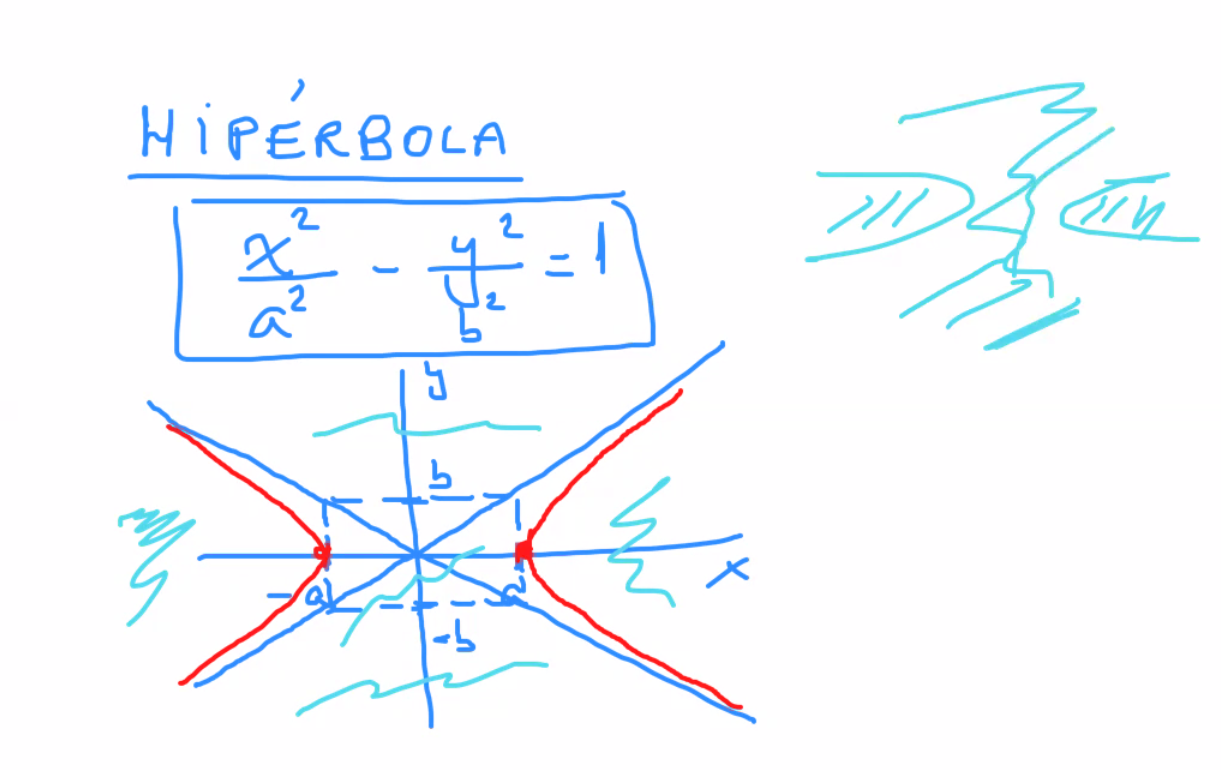 HIPÉRBOLA
x²/a² - y²/b² = 1
y
b
x
-a a
-b